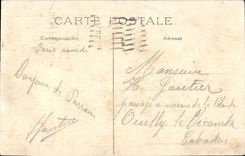 CARTE POSTALE
Correspondance
Adresse
Paris samedi
Bonjour de Parrain
Gautier
Monsieur
H. Gautier
passage à niveau de la
Ouilly le Vicomte
Calvados